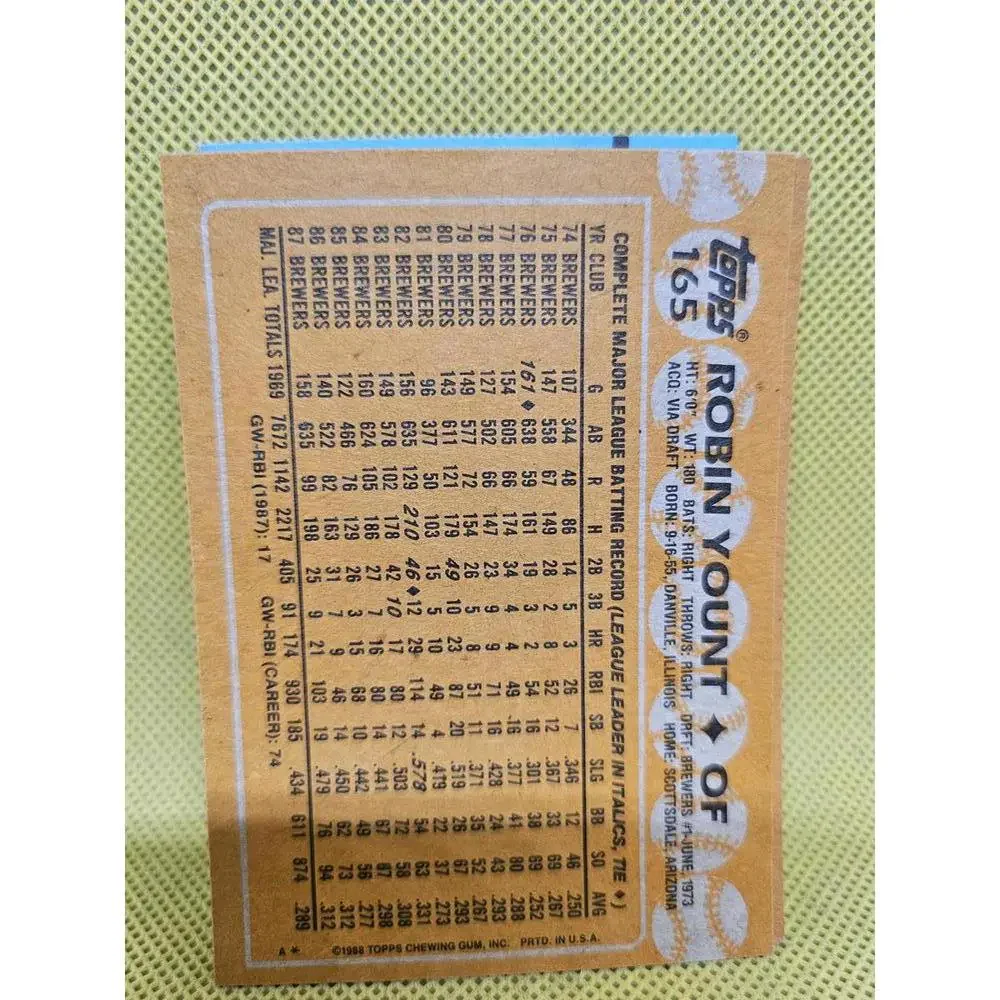 TOPPS®
165
ROBIN YOUNT ♦ OF
HT: 6'0" WT: 180 BATS: RIGHT THROWS: RIGHT DRFT: BREWERS #1-JUNE, 1973
ACQ: VIA DRAFT BORN: 9-16-55, DANVILLE, ILLINOIS HOME: SCOTTSDALE, ARIZONA
COMPLETE MAJOR LEAGUE BATTING RECORD (LEAGUE LEADER IN ITALICS, TIE ♦)
YR CLUB G AB R H 2B 3B HR RBI SB SLG BB SO AVG
74 BREWERS 107 344 48 86 14 5 3 26 7 .346 12 46 .250
75 BREWERS 147 558 67 149 28 2 8 52 12 .367 33 69 .267
76 BREWERS 161♦ 638 59 161 19 3 2 54 16 .301 38 69 .252
77 BREWERS 154 605 66 174 34 4 4 49 16 .377 41 80 .288
78 BREWERS 127 502 66 147 23 9 9 71 16 .428 24 43 .293
79 BREWERS 149 577 72 154 26 5 8 51 11 .371 35 52 .267
80 BREWERS 143 611 121 179 49 10 23 87 20 .519 26 67 .293
81 BREWERS 96 377 50 103 15 5 10 49 4 .419 22 37 .273
82 BREWERS 156 635 129 210 46♦ 12 29 114 14 .578 54 63 .331
83 BREWERS 149 578 102 178 42 10 17 80 12 .503 72 58 .308
84 BREWERS 160 624 105 186 27 7 16 80 14 .441 67 67 .298
85 BREWERS 122 466 76 129 26 3 15 68 10 .442 49 56 .277
86 BREWERS 140 522 82 163 31 7 9 46 14 .450 62 73 .312
87 BREWERS 158 635 99 198 25 9 21 103 19 .479 76 94 .312
MAJ. LEA. TOTALS 1969 7672 1142 2217 405 91 174 930 185 .434 611 874 .289
GW-RBI (1987): 17 GW-RBI (CAREER): 74
©1988 TOPPS CHEWING GUM, INC. PRTD. IN U.S.A.
A *